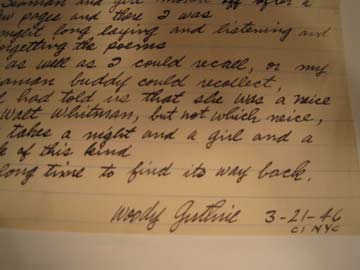 Seaman and girl
after a
few pages and there I was
night long laying and listening and
forgetting the poems
as well as I could recall, or my
seaman buddy could recollect,
had told us that she was a neice
Walt Whitman, but not which neice,
takes a night and a girl and a
of this kind
long time to find its way back.
Woody Guthrie 3-21-46
CI NYC